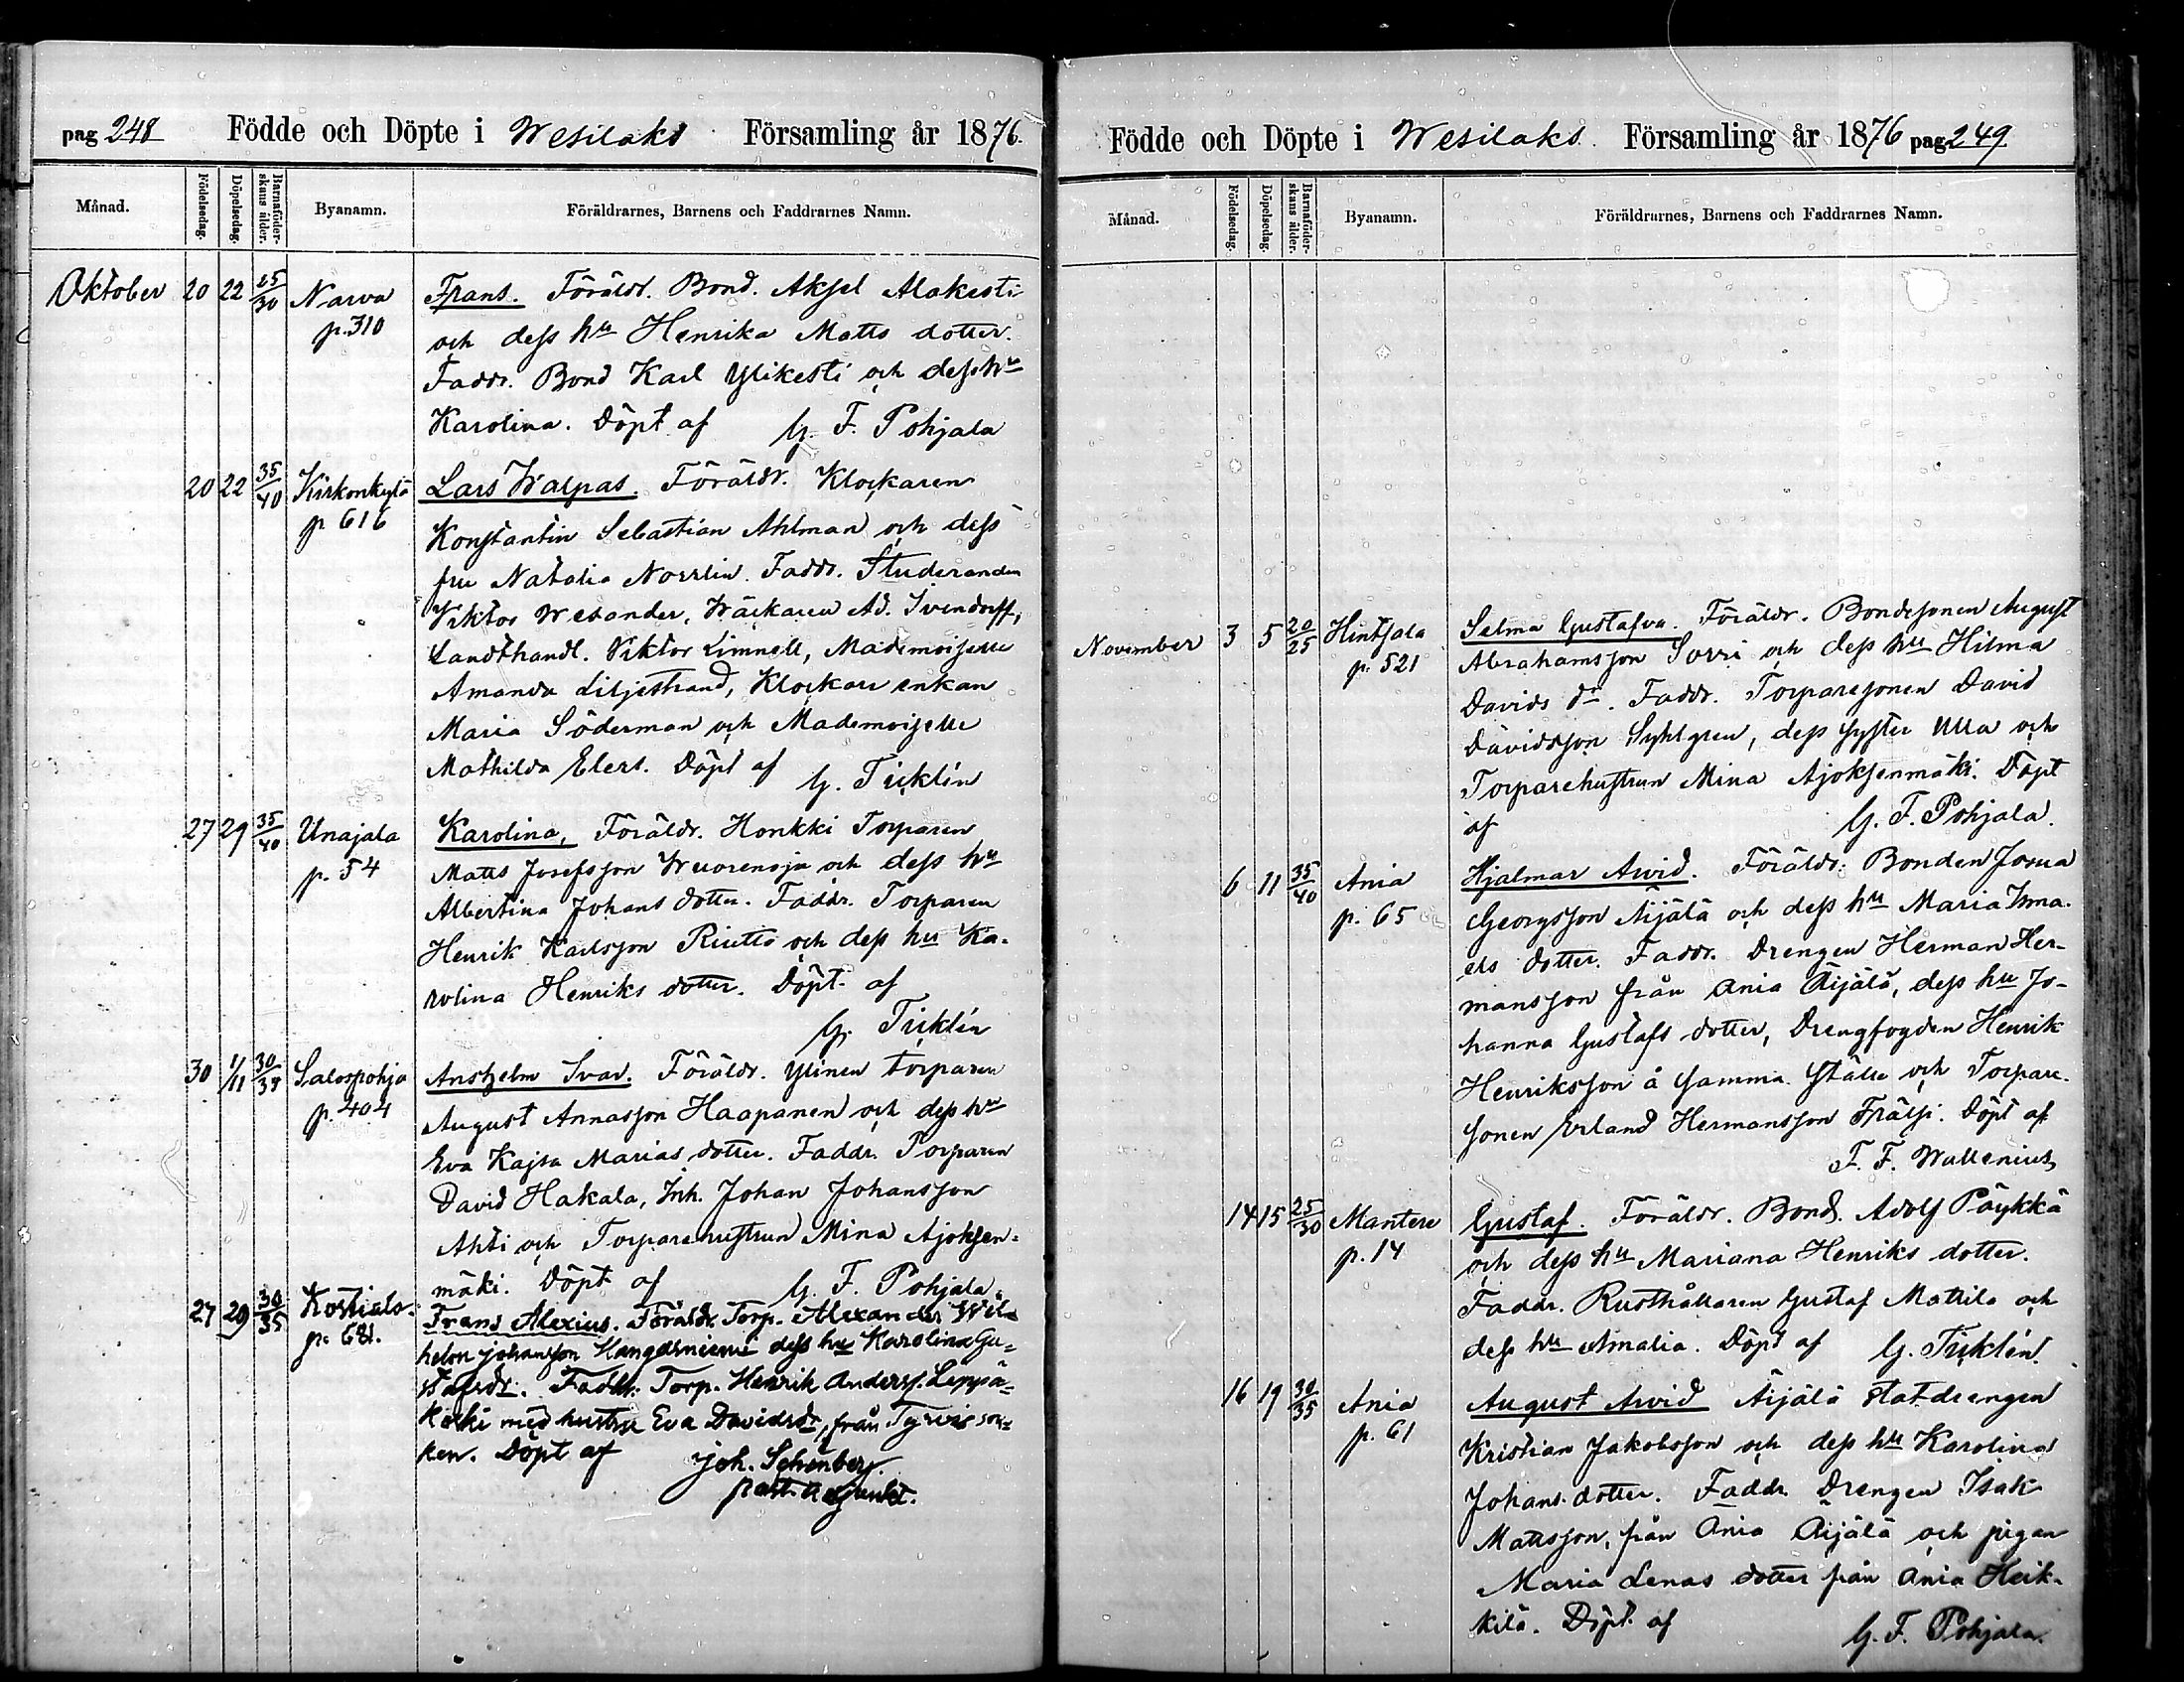 pag 248 Födde och Döpte i Wesilaks Församling år 1876.
Månad. Födelsedag. Döpelsedag. Barnaföderskans ålder. Byanamn. Föräldrarnes, Barnens och Faddrarnes Namn.
Oktober 20 22 25/30 Narva Frans. Föräldr. Bond. Aksel Alakesti
p. 310 och dess hu Henrika Matts dotter.
Faddr. Bond Karl Ylikesti och dess hu
Karolina. Döpt af G. F. Pohjala
20 22 35/40 Kirkonkylä Lars Walpas. Föräldr. Klockaren
p 616 Konstantin Sebastian Ahlman och dess
fru Natalia Norrlin. Faddr. Studeranden
Viktor Wesander, Wäckaren Ad. Ivendorff,
Landthandl. Viktor Limnell, Mademoiselle
Amanda Liljestrand, Klockare enkan
Maria Söderman och Mademoiselle
Mathilda Elers. Döpt af G. Ticklén
27 29 35/40 Unajala Karolina, Föräldr. Honkki Torparen
p. 54 Matts Josefsson Wuorensja och dess hu
Albertina Johans dotter. Faddr. Torparen
Henrik Karlsson Riutto och dess hu Ka-
rolina Henriks dotter. Döpt af
G. Ticklén
30 1/11 30/35 Salospohja Anshelm Ivar. Föräldr. Ylinen torparen
p. 404 August Annasson Haapanen och dess hu
Eva Kajsa Marias dotter. Faddr. Torparen
David Hakala, Inh. Johan Johansson
Ahti och Torparehustrun Mina Ajoksen-
mäki. Döpt af G. F. Pohjala.
27 29 30/35 Kostiala Frans Alexius. Föräldr. Torp. Alexander Wil-
p. 681. helm Johansson Hangasniemi dess hu Karolina Gu-
stafsdr. Faddr. Torp. Henrik Anderss. Leppä-
koski med hustru Eva Davidsdr, från Tyrvis soc-
ken. Döpt af Joh. Schönberg.
past. adjunkt.
Födde och Döpte i Wesilaks Församling år 1876 pag 249
Månad. Födelsedag. Döpelsedag. Barnaföderskans ålder. Byanamn. Föräldrarnes, Barnens och Faddrarnes Namn.
November 3 5 20/25 Hintsala Selma Gustafva. Föräldr. Bondesonen August
p. 521 Abrahamsson Sorri och dess hu Hilma
Davids dr. Faddr. Torparesonen David
Davidsson Syhlgren, dess syster Ulla och
Torparehustrun Mina Ajoksenmäki. Döpt
af G. F. Pohjala.
6 11 35/40 Ania Hjalmar Arvid. Föräldr. Bonden Josua
p. 65 Georgsson Äijälä och dess hu Maria Isma-
els dotter. Faddr. Drengen Herman Her-
mansson från Ania Äijälä, dess hu Jo-
hanna Gustafs dotter, Drengfogden Henrik
Henriksson å samma ställe och Torpare-
sonen Erland Hermansson Frälsi. Döpt af
F. F. Wallenius
14 15 25/30 Mantere Gustaf. Föräldr. Bond. Adolf Päykkä
p. 14 och dess hu Mariana Henriks dotter.
Faddr. Rusthållaren Gustaf Mattila och
dess hu Amalia. Döpt af G. Ticklén.
16 19 30/35 Ania August Arvid Äijälä statdrengen
p. 61 Kristian Jakobsson och dess hu Karolina
Johans dotter. Faddr. Drengen Isak
Mattsson, från Ania Äijälä och pigan
Maria Lenas dotter från Ania Heik-
kilä. Döpt af G. F. Pohjala.